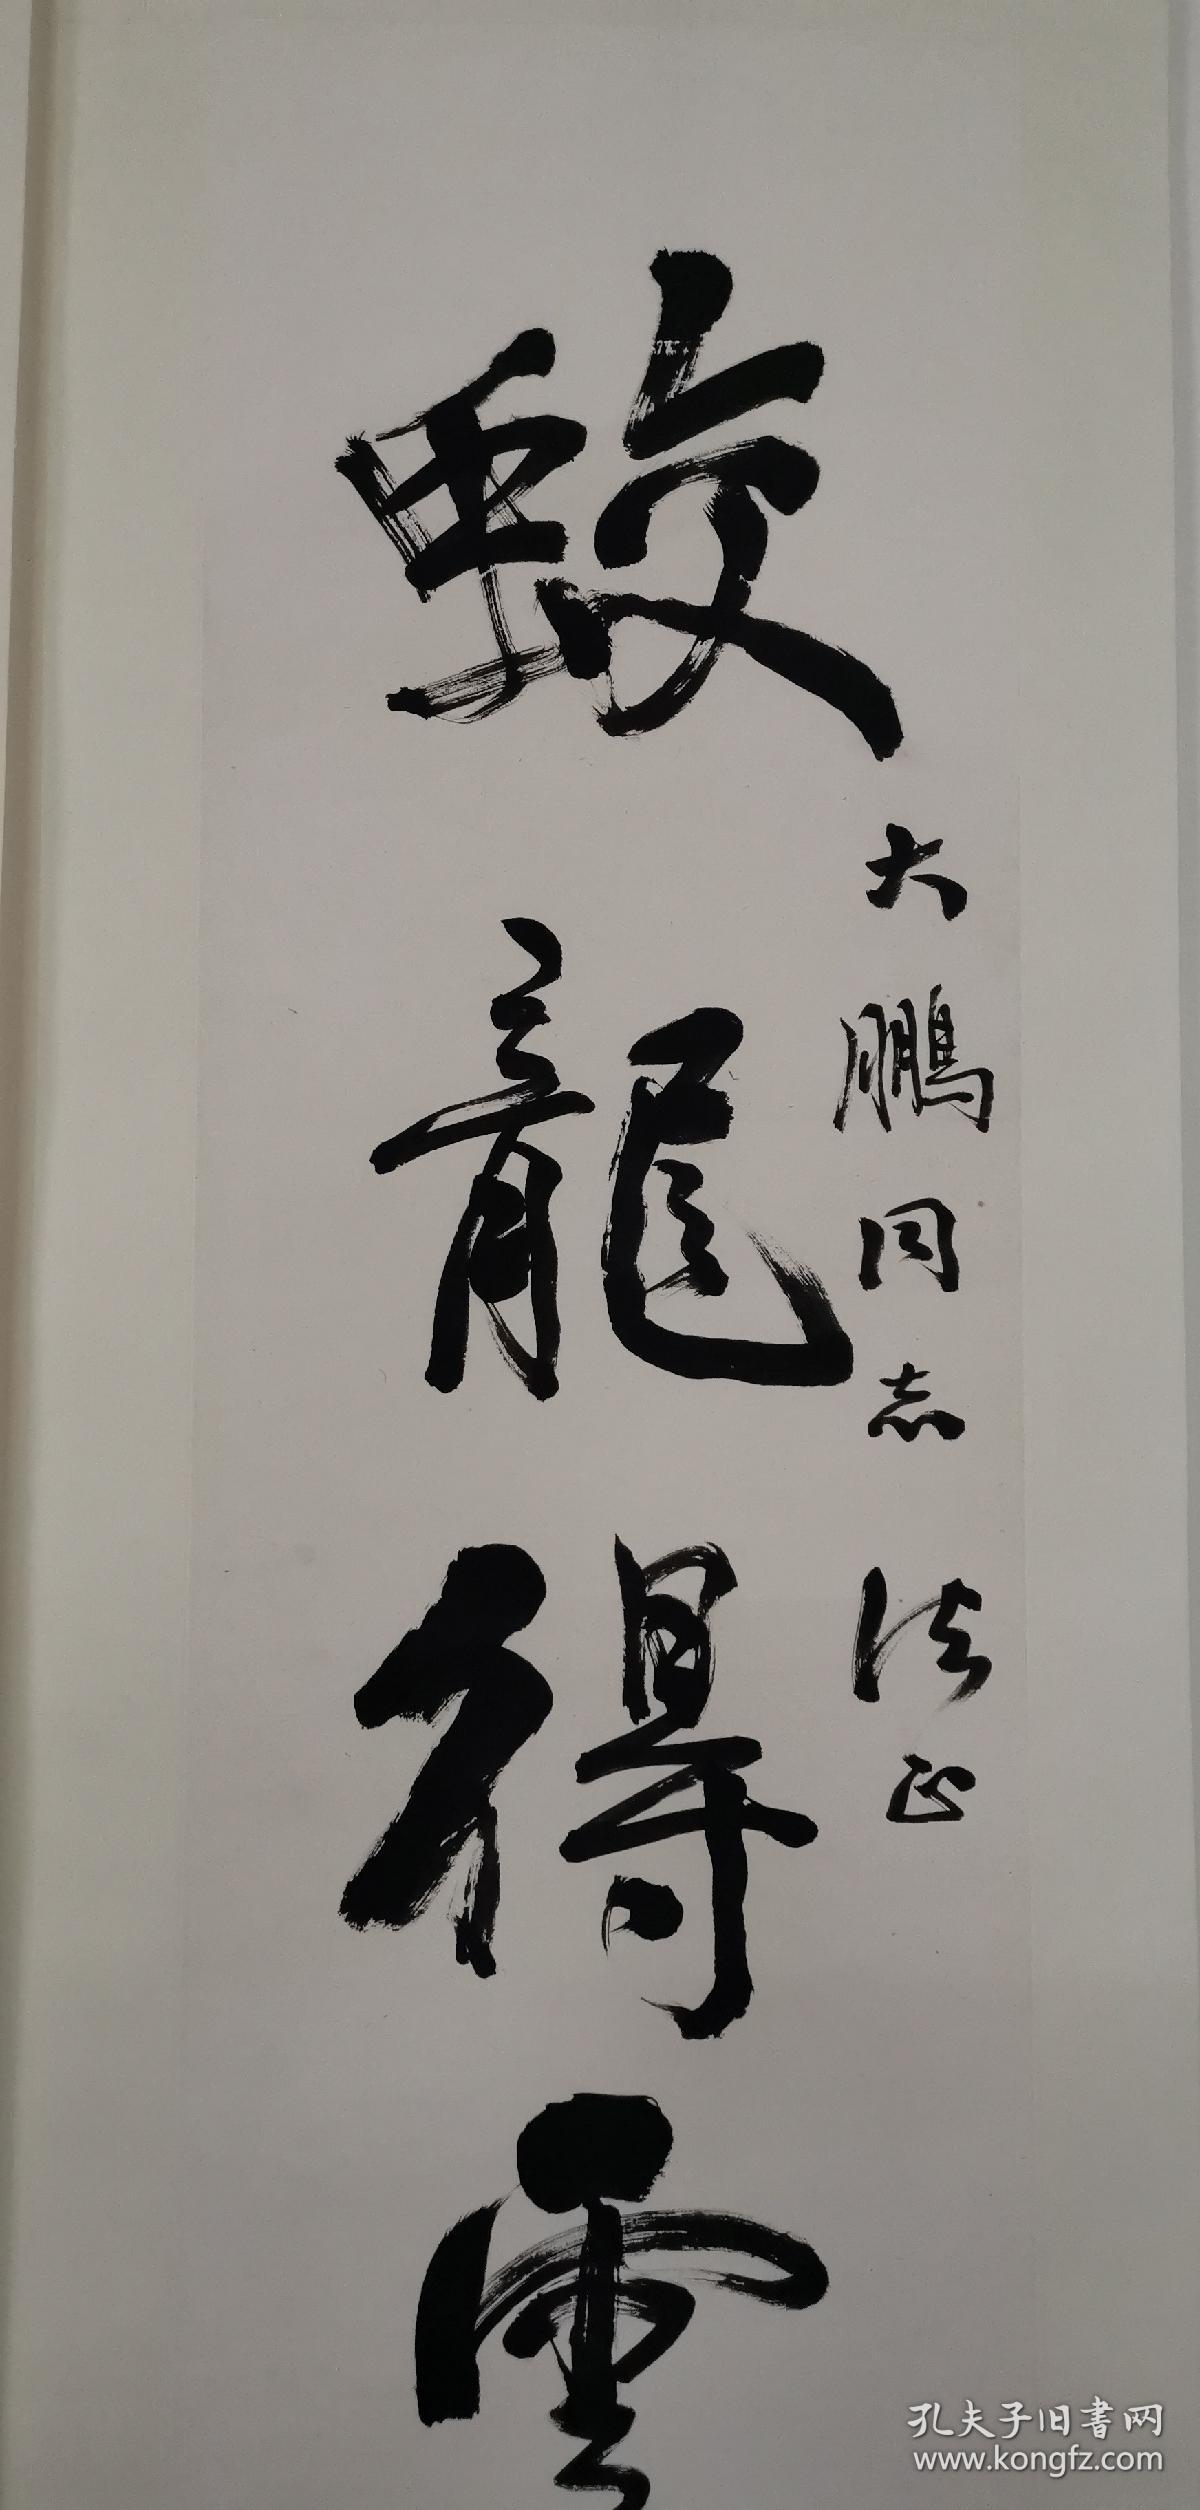 大鹏同志法正
蛟龍得雲
孔夫子旧書网
www.kongfz.com